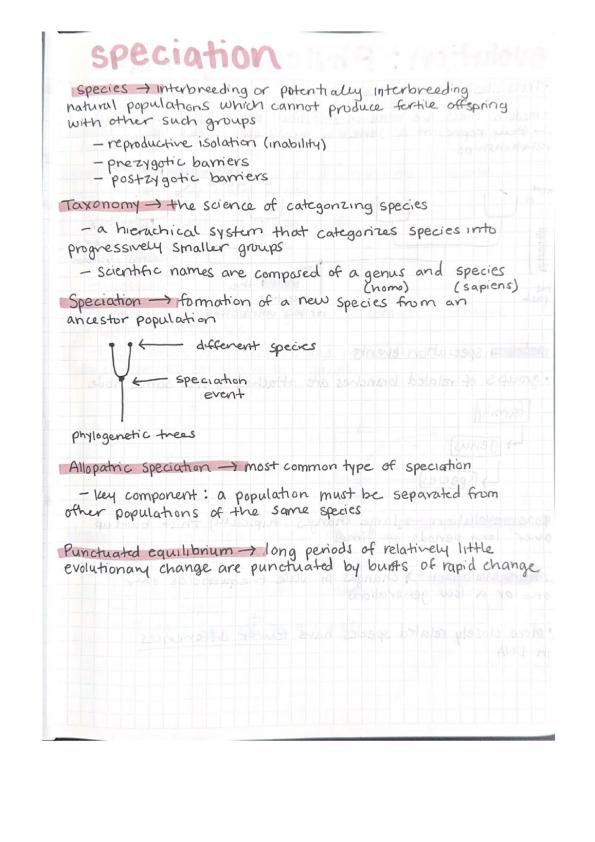 speciation
species → interbreeding or potentially interbreeding
natural populations which cannot produce fertile offspring
with other such groups
– reproductive isolation (inability)
– prezygotic barriers
– postzygotic barriers
Taxonomy → the science of categorizing species
– a hierachical system that categorizes species into
progressively smaller groups
– scientific names are composed of a genus and species
(homo) (sapiens)
Speciation → formation of a new species from an
ancestor population
different species
speciation
event
phylogenetic trees
Allopatric speciation → most common type of speciation
– key component: a population must be separated from
other populations of the same species
Punctuated equilibrium → long periods of relatively little
evolutionary change are punctuated by bursts of rapid change